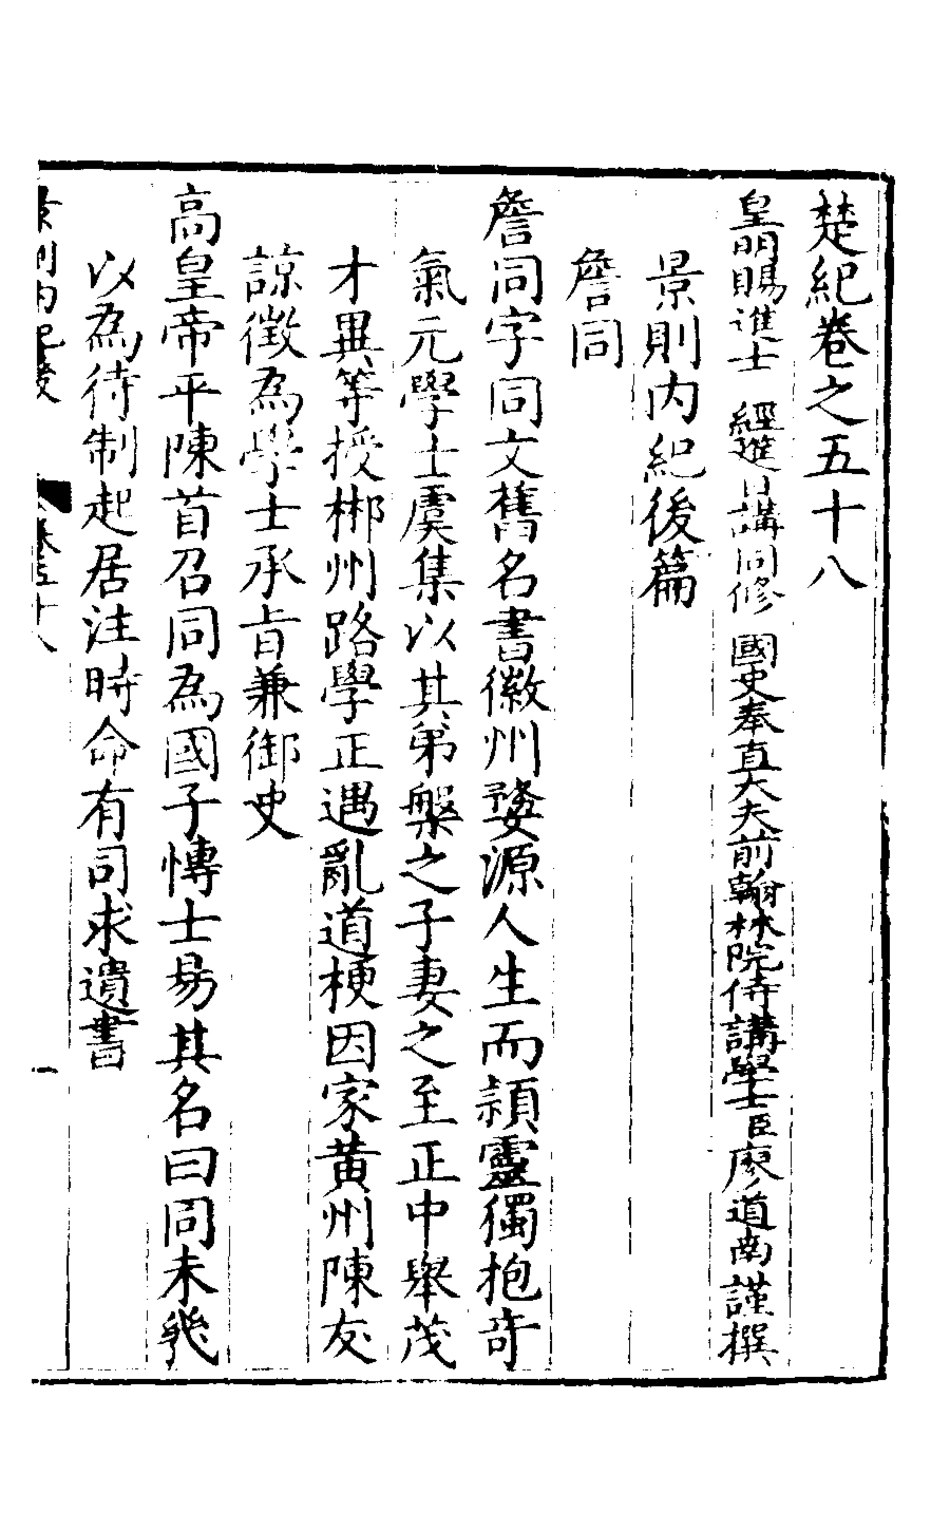 楚紀卷之五十八
皇明賜進士 經進日講同修 國史奉直大夫前翰林院侍講學士臣廖道南謹撰
景則內紀後篇
詹同
詹同字同文舊名書徽州婺源人生而頴靈獨抱奇
氣元學士虞集以其弟槃之子妻之至正中舉茂
才異等授郴州路學正遇亂道梗因家黃州陳友
諒徵為學士承旨兼御史
高皇帝平陳首召同為國子博士易其名曰同未幾
以為待制起居注時命有司求遺書
景則內紀後 卷五十八 一